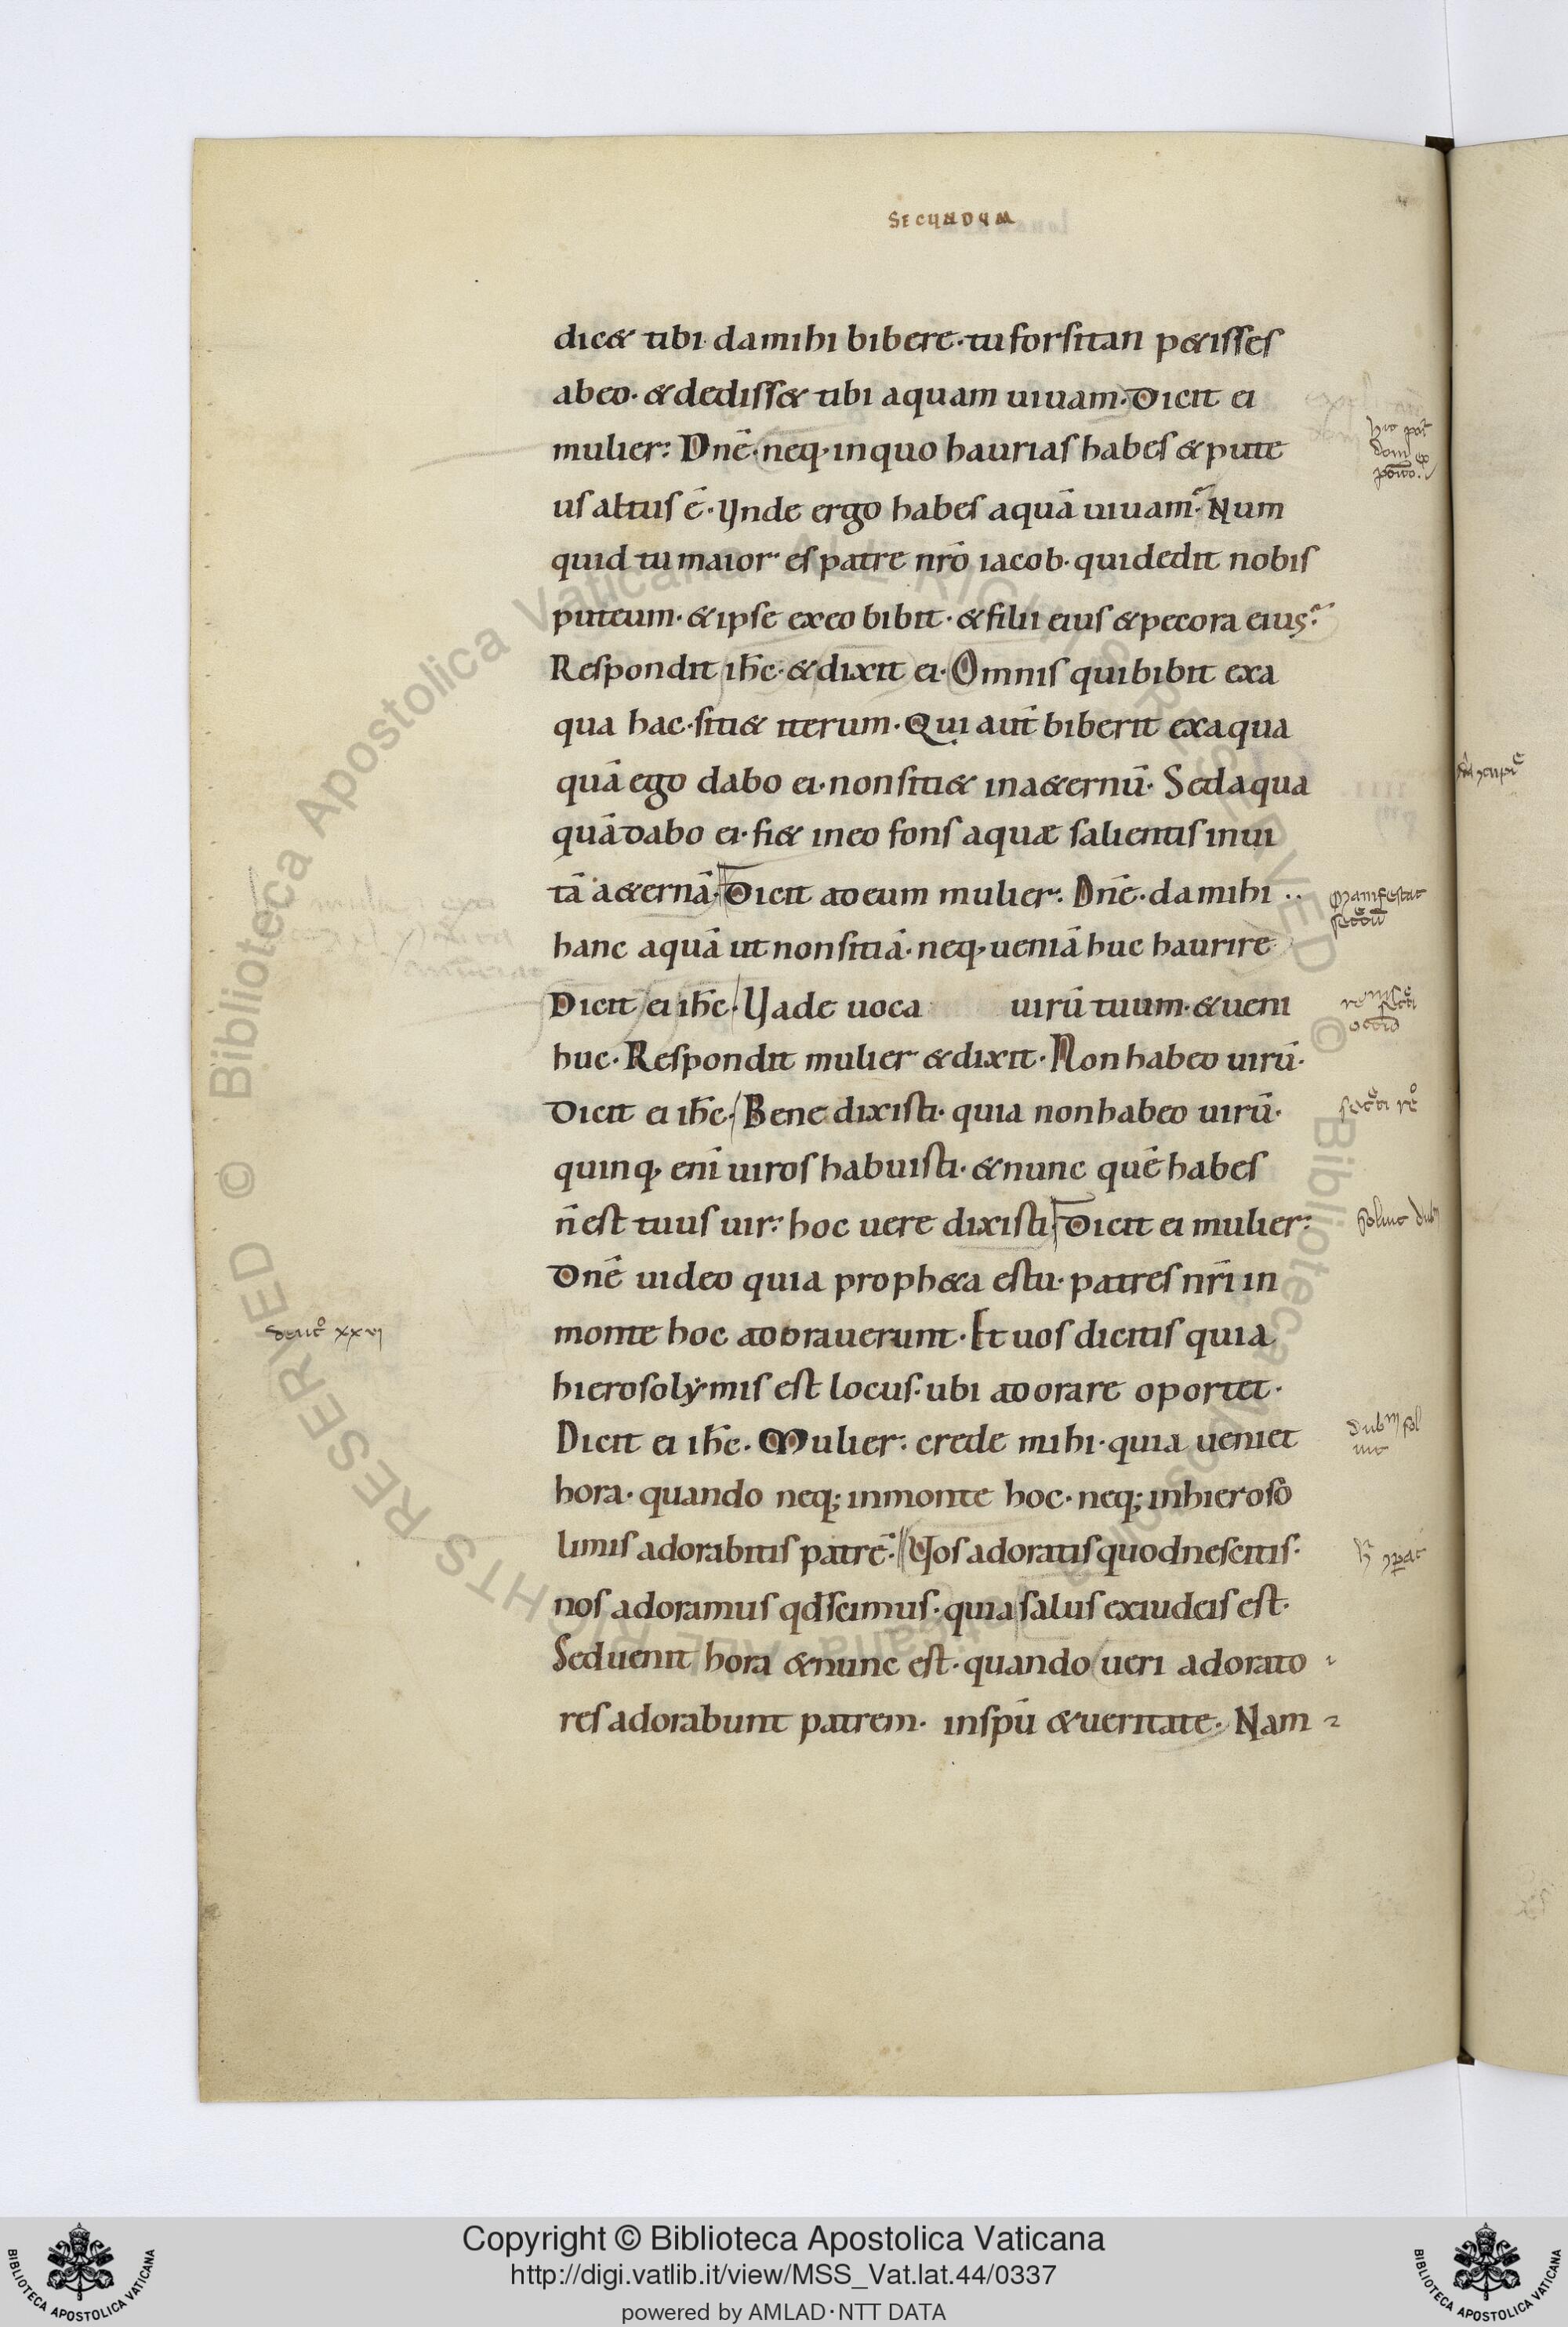 SECUNDUM
dic& tibi da mihi bibere · tu forsitan p&isses
abeo · & dediss& tibi aquam uiuam · Dicit ei
mulier: Dnē · neq · in quo haurias habes & pute
us altus ē · Vnde ergo habes aquā uiuam · Num
quid tu maior es patre nr̄o iacob · qui dedit nobis
puteum · & ipse ex eo bibit · & filii eius & pecora eius
Respondit ih̄c · & dixit ei · Omnis qui bibit ex a
qua hac · siti& iterum · Qui aut̄ biberit ex aqua
quā ego dabo ei · non siti& in a&ernū · Sed aqua
quā dabo ei · fi& in eo fons aquæ salientis in ui
tā a&ernā · Dicit ad eum mulier: Dnē · da mihi
hanc aquā ut non sitiā · neq · ueniā huc haurire
Dicit ei ih̄c · Vade uoca uirū tuum · & ueni
huc · Respondit mulier & dixit · Non habeo uirū ·
Dicit ei ih̄c · Bene dixisti · quia non habeo uirū ·
quinq eni̅ uiros habuisti · & nunc quē habes
n̄ est tuus uir: hoc uere dixisti · Dicit ei mulier:
Dnē uideo quia proph&a es tu · patres nr̄i in
monte hoc adorauerunt · Et uos dicitis quia
hierosolymis est locus · ubi adorare oportet ·
Dicit ei ih̄c · Mulier: crede mihi · quia ueniet
hora · quando neq; in monte hoc · neq; in hieroso
limis adorabitis patrē · Vos adoratis quod nescitis ·
nos adoramus qd̄ scimus · quia salus ex iudeis est ·
Sed uenit hora & nunc est · quando ueri adorato
res adorabunt patrem · in sp̄u & ueritate · Nam
Manifestat
xxvi
Copyright © Biblioteca Apostolica Vaticana
http://digi.vatlib.it/view/MSS_Vat.lat.44/0337
powered by AMLAD · NTT DATA
BIBLIOTECA APOSTOLICA VATICANA
BIBLIOTECA APOSTOLICA VATICANA
Biblioteca Apostolica Vaticana ALL RIGHTS RESERVED ©
Biblioteca Apostolica Vaticana ALL RIGHTS RESERVED ©